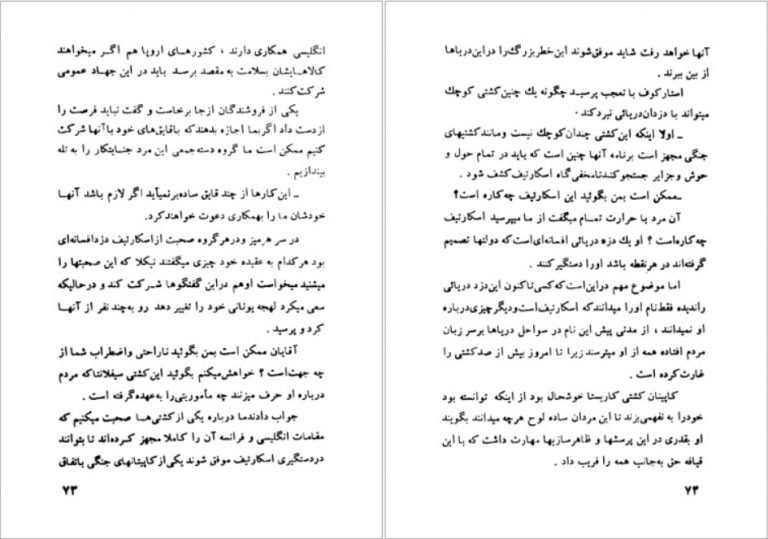 آنها خواهد رفت شاید موفق‌شوند این‌خطر بزرگ را در این‌دریاها
از بین ببرند .
استارکوف با تعجب پرسید چگونه یك چنین‌کشتی کوچك
میتواند با دزدان‌دریائی نبرد کند ·
ـ اولا اینکه این‌کشتی چندان‌کوچك نیست ومانند کشتیهای
جنگی مجهز است برنامه آنها چنین است که باید در تمام حول و
حوش وجزایر جستجوکنندتا مخفی‌گاه اسکارتیف‌کشف شود .
ـ ممکن است بمن بگوئید این اسکارتیف چه‌کاره است؟
آن مرد با حرارت تمام میگفت از ما میپرسید اسکارتیف
چه‌کاره‌است ؟ او یك دزد دریائی افسانه‌ای‌است‌که دولتها تصمیم
گرفته‌اند در هرنقطه باشد اورا دستگیر کنند .
اما موضوع مهم دراین‌است‌که‌کسی‌تاکنون این‌دزد دریائی
راندیده فقط‌نام اورا میدانندکه اسکارتیف‌است‌ودیگرچیزی‌درباره
او نمیدانند ، از مدتی پیش این نام در سواحل دریاها برسر زبان
مردم افتاده همه از او میترسند زیرا تا امروز بیش از صدکشتی را
غارت‌کرده است .
کاپیتان کشتی کاریستا خوشحال بود از اینکه توانسته بود
خودرا به نفهمی‌بزند تا این مردان ساده لوح هرچه میدانند بگویند
او بقدری در این پرسشها و ظاهرسازیها مهارت داشت که با این
قیافه حق به‌جانب همه را فریب داد .
۷۳
انگلیسی همکاری دارند ، کشورهای اروپا هم اگر میخواهند
کالاهایشان بسلامت به مقصد برسد باید در این جهاد عمومی
شرکت‌کنند .
یکی از فروشندگان ازجا برخاست و گفت نباید فرصت را
ازدست داد اگربما اجازه بدهندکه باقایق‌های خود باآنها شرکت
کنیم ممکن است ما گروه دسته‌جمعی این مرد جنایتکار را به تله
بیندازیم .
ـ این‌کارها از چند قایق ساده‌برنمیآید اگر لازم باشد آنها
خودشان ما را بهمکاری دعوت خواهندکرد.
در سر هرمیز ودرهرگروه صحبت ازاسکارتیف دزدافسانه‌ای
بود هرکدام به عقیده خود چیزی میگفتند نیکلا که این صحبتها را
میشنید میخواست اوهم دراین گفتگوها شرکت کند و درحالیکه
سعی میکرد لهجه یونانی خود را تغییر دهد رو به‌چند نفر از آنها
کرد و پرسید .
آقایان ممکن است بمن بگوئید ناراحتی واضطراب شما از
چه جهت‌است ؟ خواهش‌میکنم بگوئید این‌کشتی سیفلانتاکه مردم
درباره او حرف میزنند چه مأموریتی‌را به‌عهده‌گرفته است .
جواب دادندما درباره یکی ازکشتی‌ها صحبت میکنیم که
مقامات انگلیسی و فرانسه آن را کاملا مجهز کرده‌اند تا بتوانند
دردستگیری اسکارتیف موفق شوند یکی‌ازکاپیتانهای جنگی باتفاق
۷۳